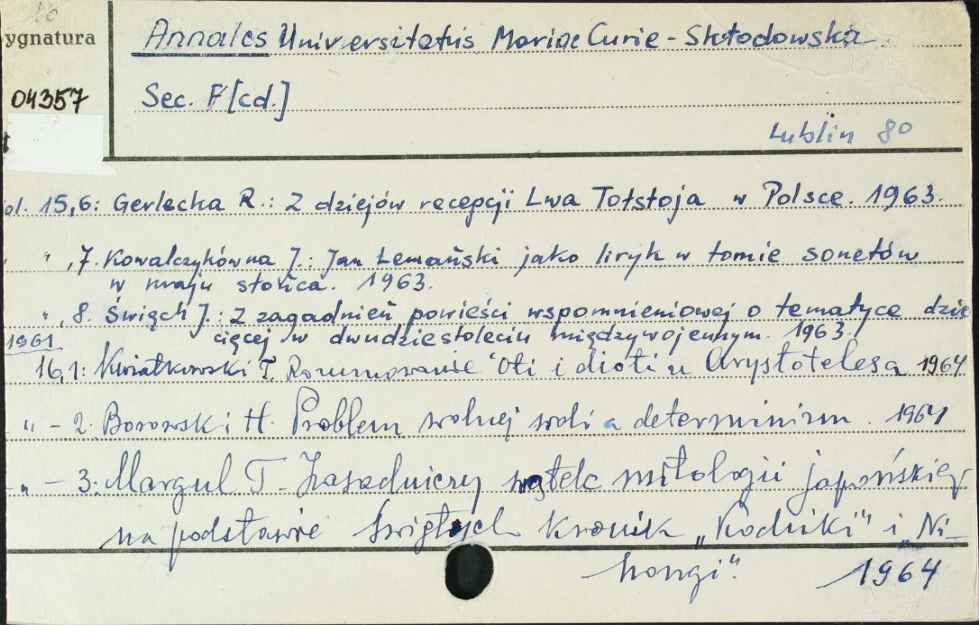 ygnatura
Annales Universitatis Mariae Curie-Skłodowska
04357
Sec. F [cd.]
Lublin 80
ol. 15,6: Gerlecka R.: Z dziejów recepcji Lwa Tołstoja w Polsce. 1963.
" ,7. Kowalczykówna J.: Jan Lemański jako liryk w tomie sonetów
w kraju słońca. 1963.
" ,8. Święch J.: Z zagadnień powieści wspomnieniowej o tematyce dzie
cięcej w dwudziestoleciu międzywojennym. 1963.
1961
16,1: Kwiatkowski T. Rozumowanie "Oti i dioti u Arystotelesa 1964
- " - 2. Borowski H. Problem wolnej woli a determinizm. 1964
- " - 3. Margul T - Zasadniczy wątek mitologii japońskiej
na podstawie świętych kronik „Kodziki" i „Ni-
hongi". 1964